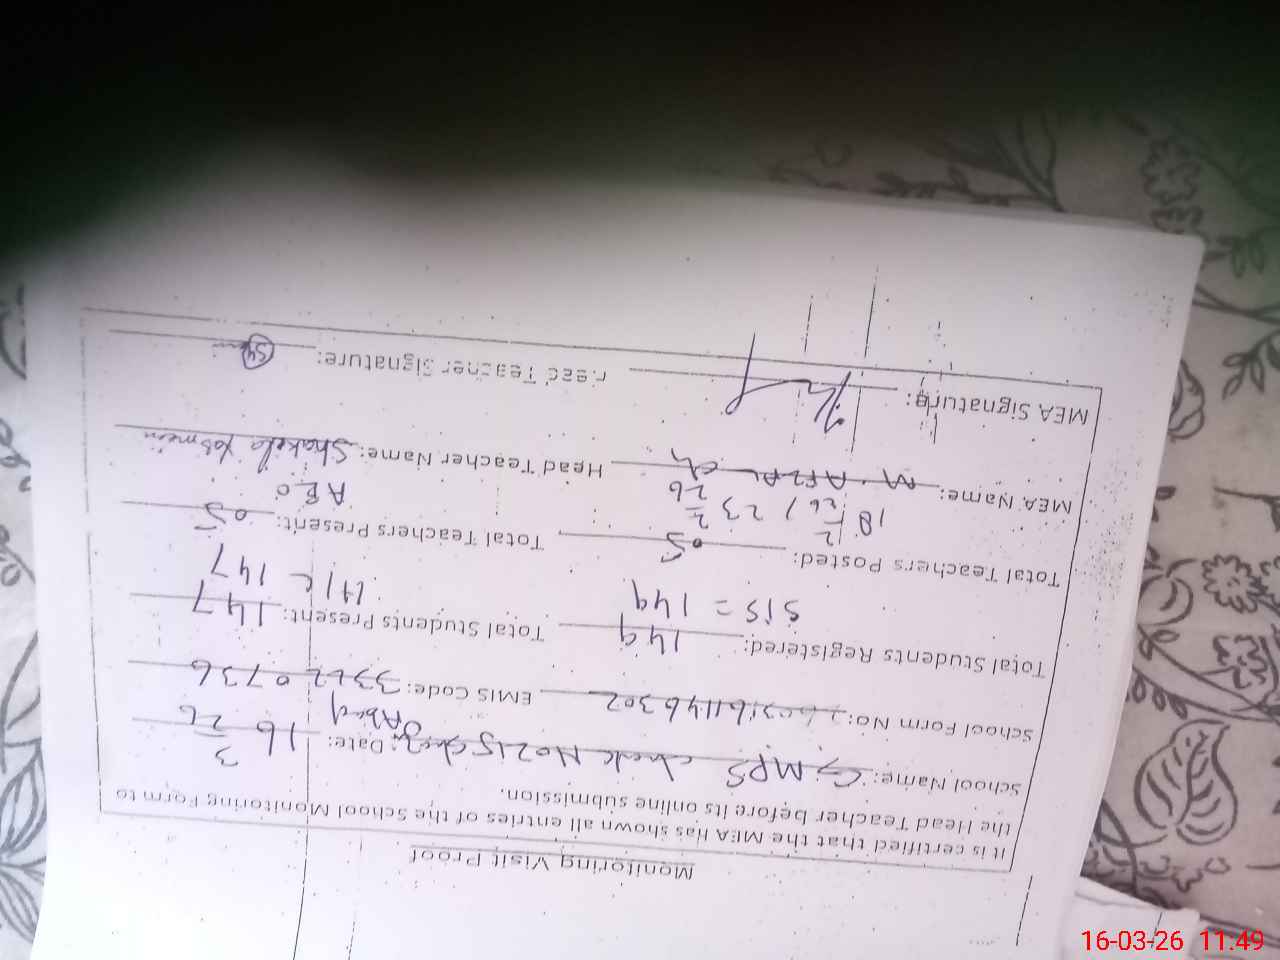 Monitoring Visit Proof
It is certified that the MEA has shown all entries of the School Monitoring Form to
the Head Teacher before its online submission.
School Name: GMPS chak No 215 Date: 16 3 26
School Form No: EMIS Code: 33220736
Total Students Registered: 149 Total Students Present: 147
SIS = 149 147
Total Teachers Posted: 05 Total Teachers Present: 05
18/2/26 / 23/2/26 AEO
MEA Name: M. AFZAL Ch Head Teacher Name: Shakela Yasmein
MEA Signature: Head Teacher Signature:
16-03-26 11.49